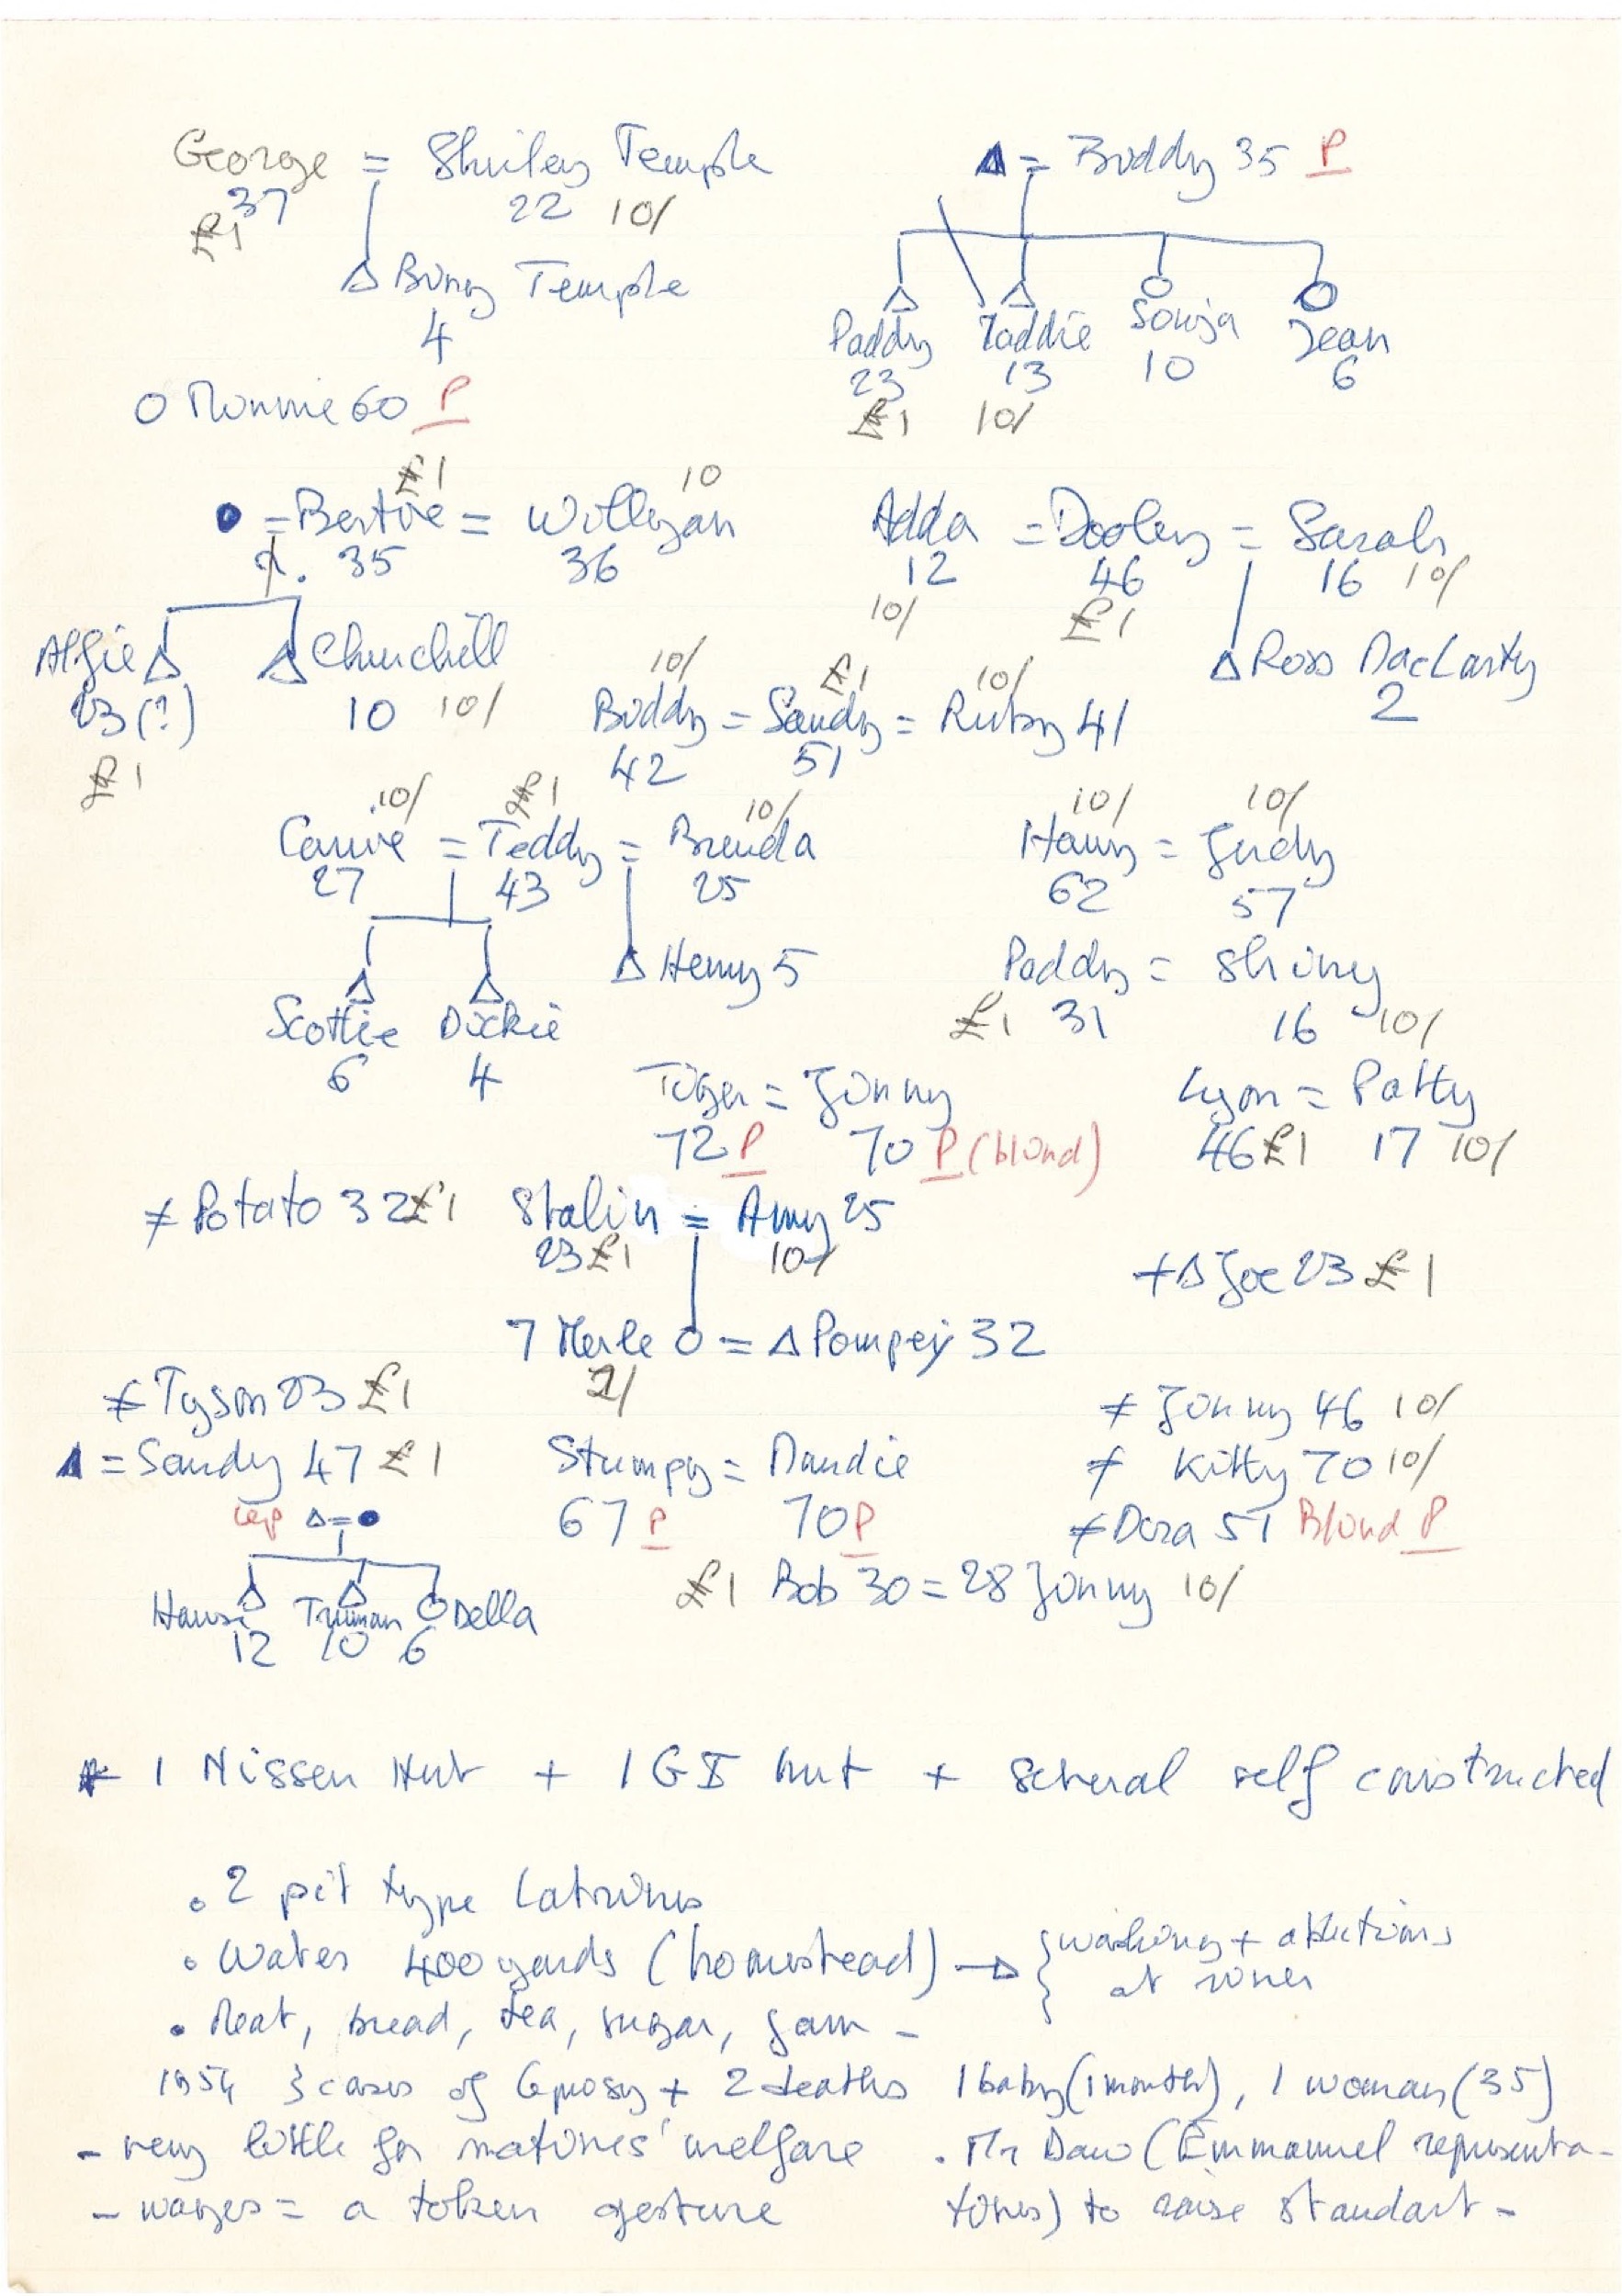 George = Shirley Temple
37 22 10/
£1
Bing Temple
4
= Biddy 35 P
Paddy Taddie Sonja Jean
23 13 10 6
£1 10/
Minnie 60 P
£1 10
= Bertie = Willigan
35 36
Alfie Churchill
23 (?) 10 10/
£1
Adda = Dooley = Sarah
12 46 16 10/
10/ £1
Ross MacLarty
2
10/ £1 10/
Biddy = Sandy = Ruby 41
42 51
10/ £1 10/
Connie = Teddy = Brenda
27 43 25
Henry 5
Scottie Dickie
6 4
10/ 10/
Harry = Judy
62 57
Paddy = Shiny
£1 31 16 10/
Tiger = Jinny
72 P 70 P (blind)
Lyon = Patty
46 £1 17 10/
≠ Potato 32 £1
Stalin = Amy 25
23 £1 10/
+ Joe 23 £1
7 Merle = Pompey 32
≠ Tyson 23 £1
≠ Jinny 46 10/
= Sandy 47 £1
Stumpy = Maudie
67 P 70 P
≠ Kitty 70 10/
lep =
≠ Dora 51 Blind P
£1 Bob 30 = 28 Jinny 10/
Hansi Truman Della
12 10 6
* 1 Nissen Hut + 1 G I hut + several self constructed
. 2 pit type latrines
. Water 400 yards (homestead) → { washing + ablutions
at river
. Meat, bread, tea, sugar, jam -
1954 3 cases of leprosy + 2 deaths 1 baby (1 month), 1 woman (35)
- very little for natives' welfare . Mr Daw (Emmanuel representa-
- wages = a token gesture tives) to raise standart -